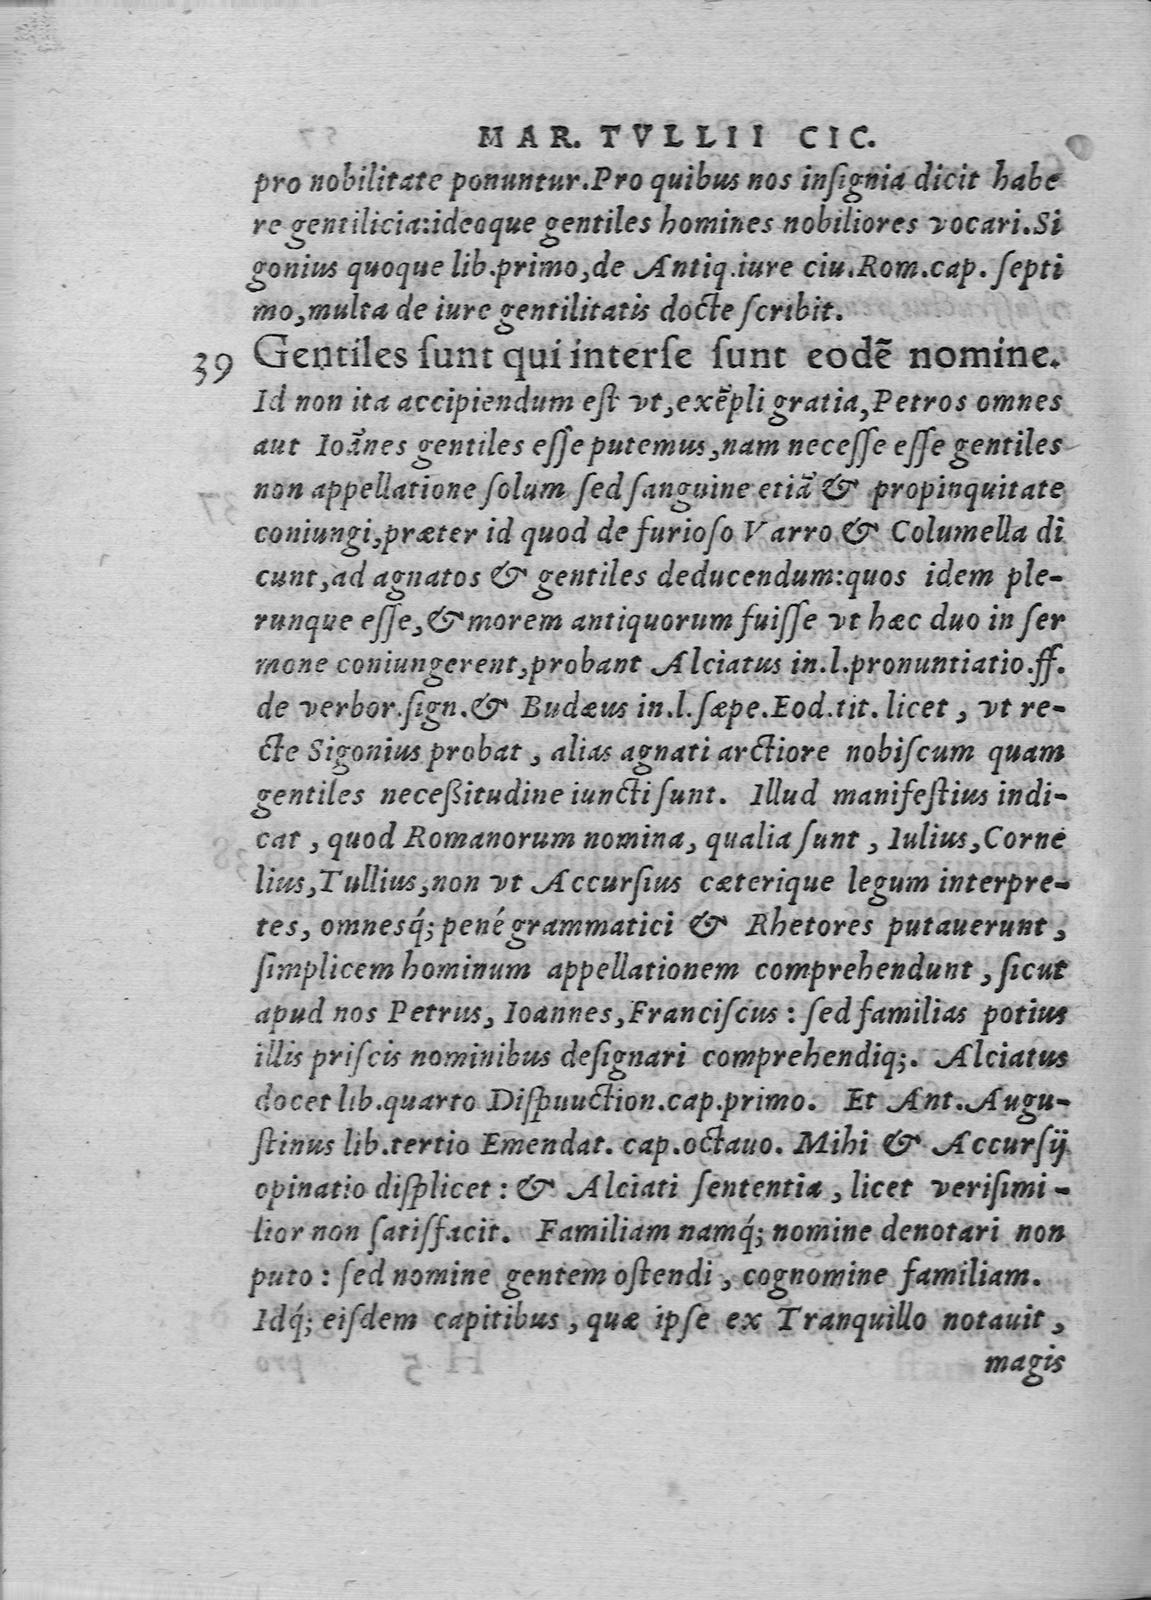 MAR. TVLLII CIC.
pro nobilitate ponuntur.Pro quibus nos inſignia dicit habe
re gentilicia:ideoque gentiles homines nobiliores vocari.Si
gonius quoque lib.primo,de Antiq.iure ciu.Rom.cap. ſepti
mo,multa de iure gentilitatis docte ſcribit.
39 Gentiles ſunt qui interſe ſunt eodē nomine.
Id non ita accipiendum eſt vt,exēpli gratia,Petros omnes
aut Ioānes gentiles eſſe putemus,nam neceſſe eſſe gentiles
non appellatione ſolum ſed ſanguine etiā & propinquitate
coniungi,præter id quod de furioſo Varro & Columella di
cunt,ad agnatos & gentiles deducendum:quos idem ple-
runque eſſe,& morem antiquorum fuiſſe vt hæc duo in ſer
mone coniungerent,probant Alciatus in.l.pronuntiatio.ff.
de verbor.ſign.& Budæus in.l.ſæpe.Eod.tit. licet, vt re-
cte Sigonius probat, alias agnati arctiore nobiſcum quam
gentiles neceßitudine iuncti ſunt. Illud manifeſtius indi-
cat, quod Romanorum nomina, qualia ſunt, Iulius,Corne
lius,Tullius,non vt Accurſius cæterique legum interpre-
tes, omnesq́; pené grammatici & Rhetores putauerunt,
ſimplicem hominum appellationem comprehendunt, ſicut
apud nos Petrus, Ioannes,Franciſcus: ſed familias potius
illis priſcis nominibus deſignari comprehendiq;. Alciatus
docet lib.quarto Diſpuuction.cap.primo. Et Ant.Augu-
ſtinus lib.tertio Emendat. cap.octauo. Mihi & Accurſij
opinatio diſplicet: & Alciati ſententia, licet veriſimi-
lior non ſatiſfacit. Familiam namq́; nomine denotari non
puto: ſed nomine gentem oſtendi, cognomine familiam.
Idq́; eiſdem capitibus, quæ ipſe ex Tranquillo notauit,
magis